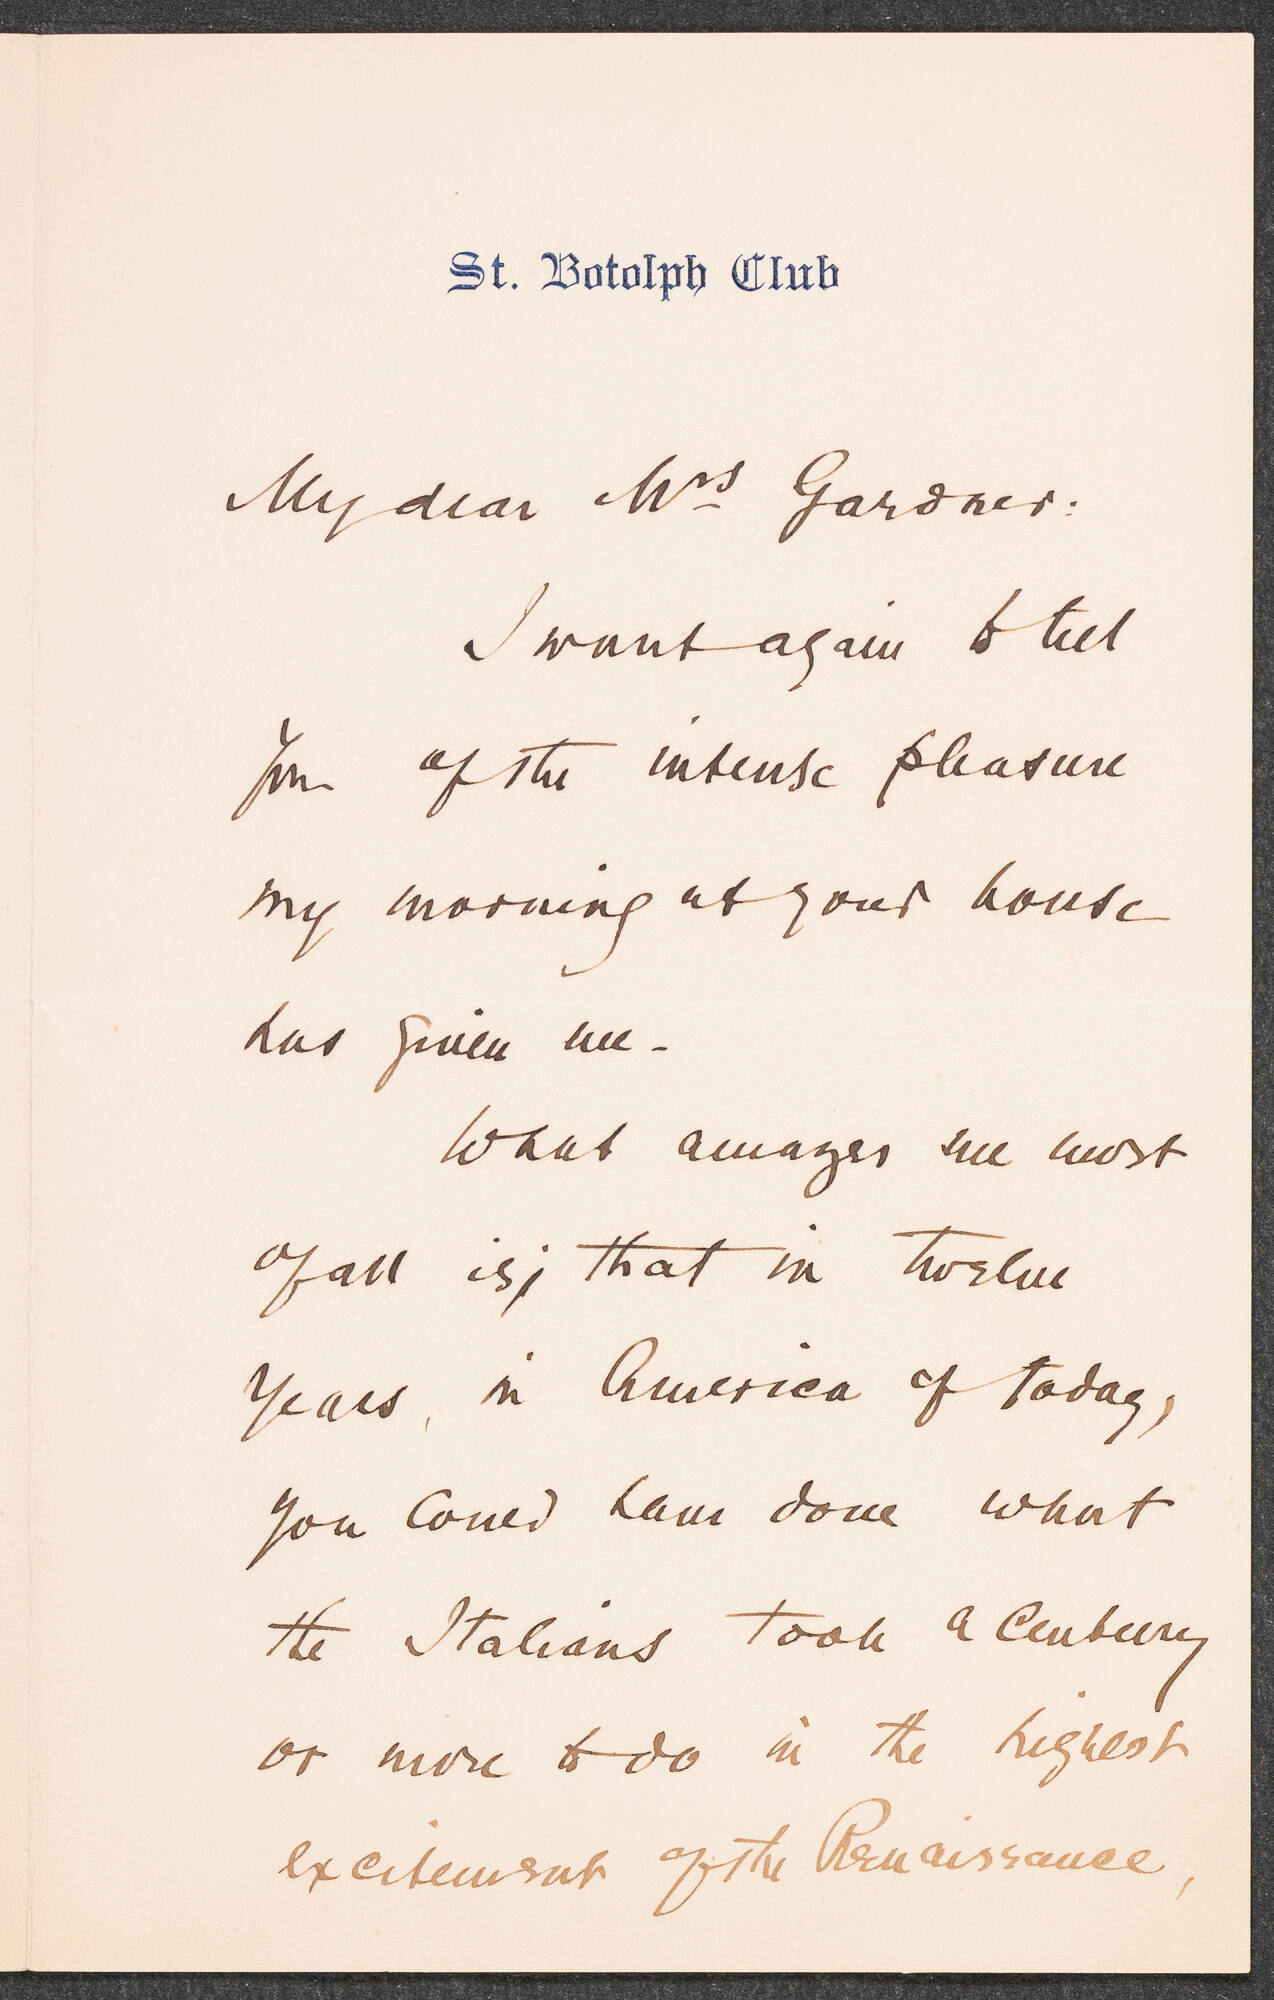 St. Botolph Club
My dear Mrs Gardner:
I want again to tell
you of the intense pleasure
my morning at your house
has given me -
What amazes me most
of all is; that in twelve
years, in America of today,
you could have done what
the Italians took a century
or more to do in the highest
excitement of the Renaissance,